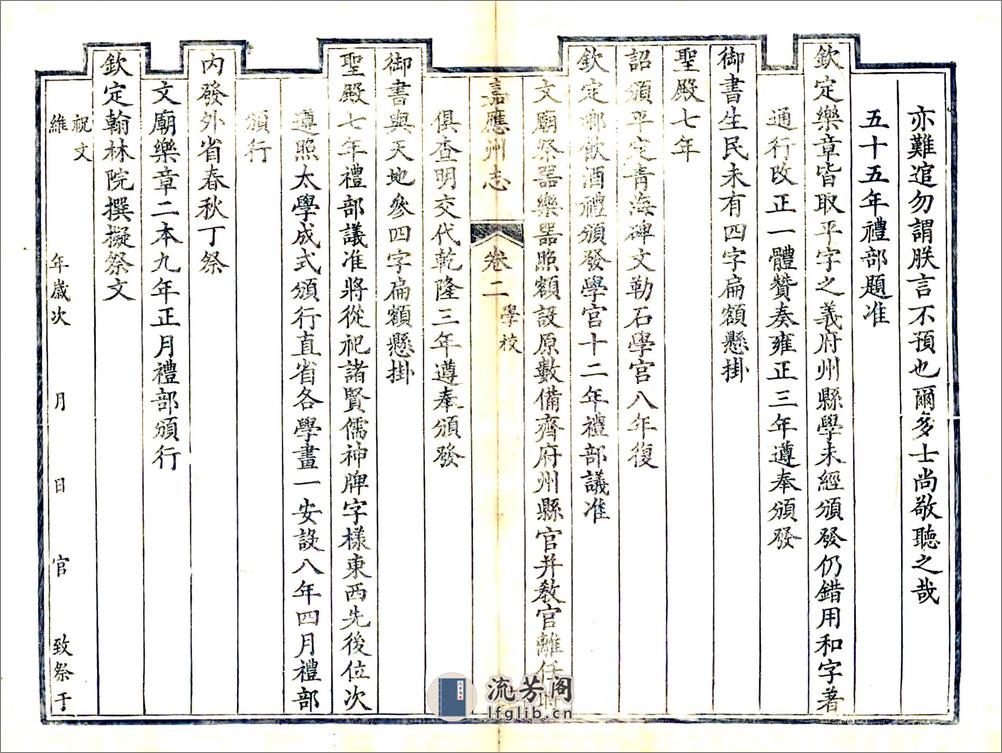 亦難逭勿謂朕言不預也爾多士尚敬聽之哉
五十五年禮部題准
欽定樂章皆取平字之義府州縣學未經頒發仍錯用和字著
通行改正一體贊奏雍正三年遵奉頒發
御書生民未有四字扁額懸掛
聖殿七年
詔頒平定青海碑文勒石學宮八年復
欽定鄉飲酒禮頒發學宮十二年禮部議准
文廟祭器樂器照額設原數備齊府州縣官并教官離任
嘉應州志
卷二
學校
俱查明交代乾隆三年遵奉頒發
御書與天地參四字扁額懸掛
聖殿七年禮部議准將從祀諸賢儒神牌字樣東西先後位次
遵照太學成式頒行直省各學畫一安設八年四月禮部
頒行
內發外省春秋丁祭
文廟樂章二本九年正月禮部頒行
欽定翰林院撰擬祭文
祝文
維 年歲次 月 日 官 致祭于
流芳阁
lfglib.cn